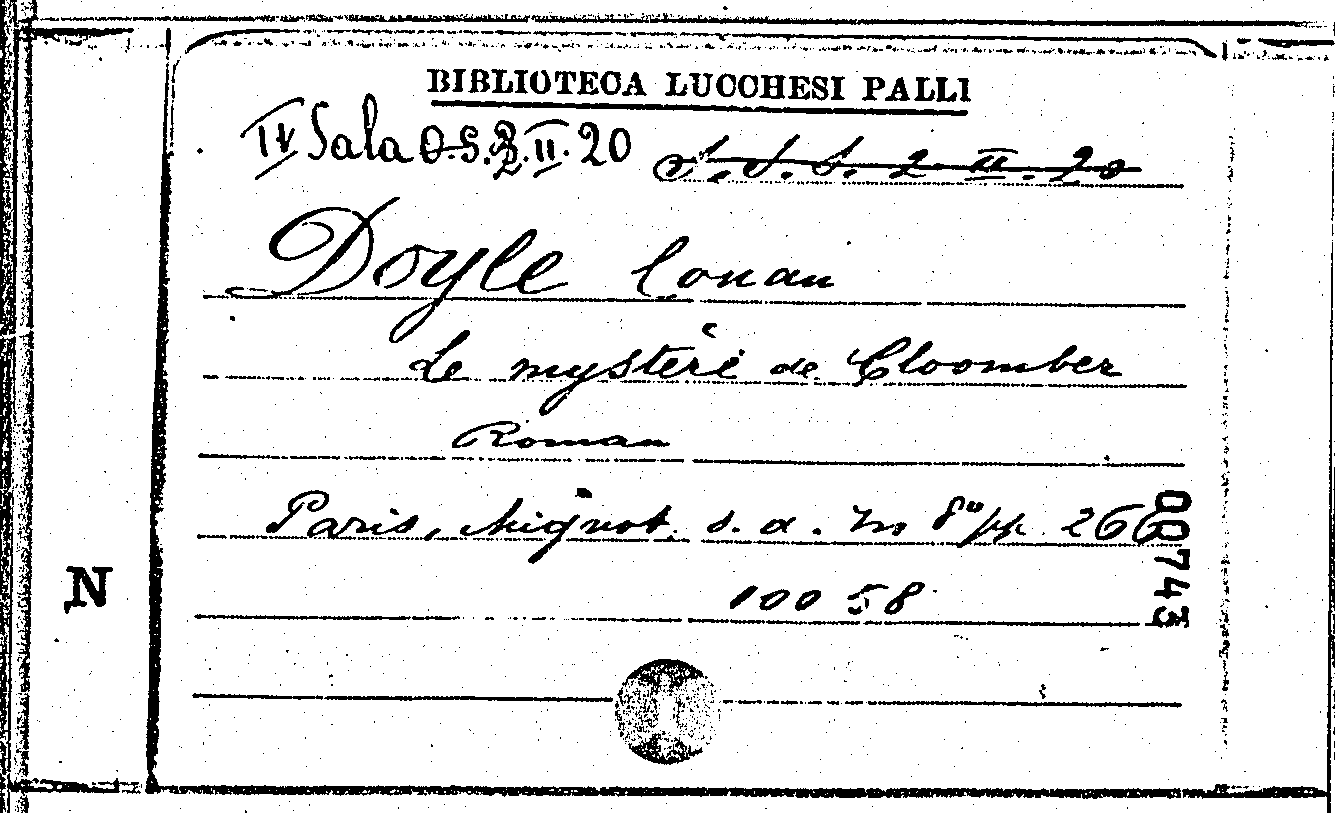 BIBLIOTECA LUCCHESI PALLI
IV Sala O.S.2.II.20 S.S.S. 2-II.20
Doyle Conan
Le mystère de Cloomber
Roman
Paris, Mignot. s. a. In 8º pp. 266
10058
N
00743